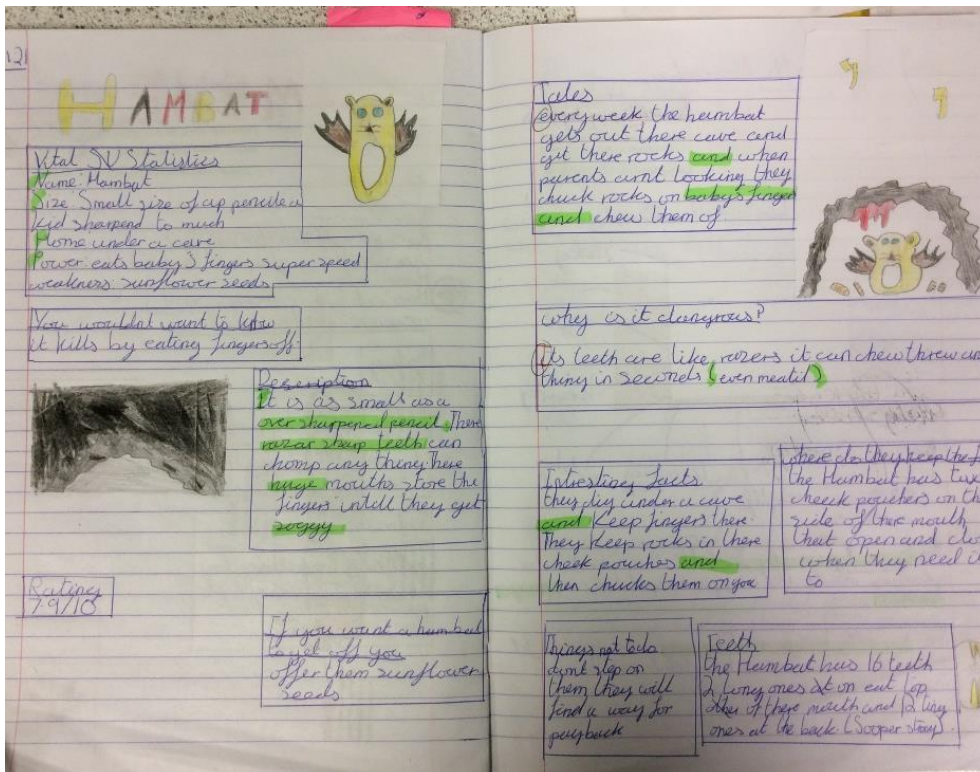 121
HAMBAT
Vital SU Statistics
Name: Hambat
Size: Small size of a pencile a
kid sharpend to much
Home under a cave
Power: eats baby's fingers super speed
weakness: sunflower seeds
You wouldnt want to know
it kills by eating fingers off.
Description
It is as small as a
over sharpened pencil. There
razar sharp teeth can
chomp any thing. There
huge mouths store the
fingers intill they get
soggy
Rating
7.9/10
If you want a hambat
to get off you
offer them sunflower
seeds
Tales
every week the hambat
gets out there cave and
get there rocks and when
parents arnt looking they
chuck rocks on baby's finger
and chew them of
why is it dangrous?
its teeth are like razers it can chew threw
thing in seconds (even meatil)
Intresting facts
they dig under a cave
and keep fingers there.
They keep rocks in there
cheek pouches and
then chucks them on you
where do they keep the
the Hambat has
cheek pouches on
side of there mouth
that open and
when they need
to
Things not to do
dont step on
them they will
find a way for
payback
Teeth
the Hambat has 16 teeth
2 long ones at on eat top
of there mouth and 12 tiny
ones at the back. (Sooper strong).